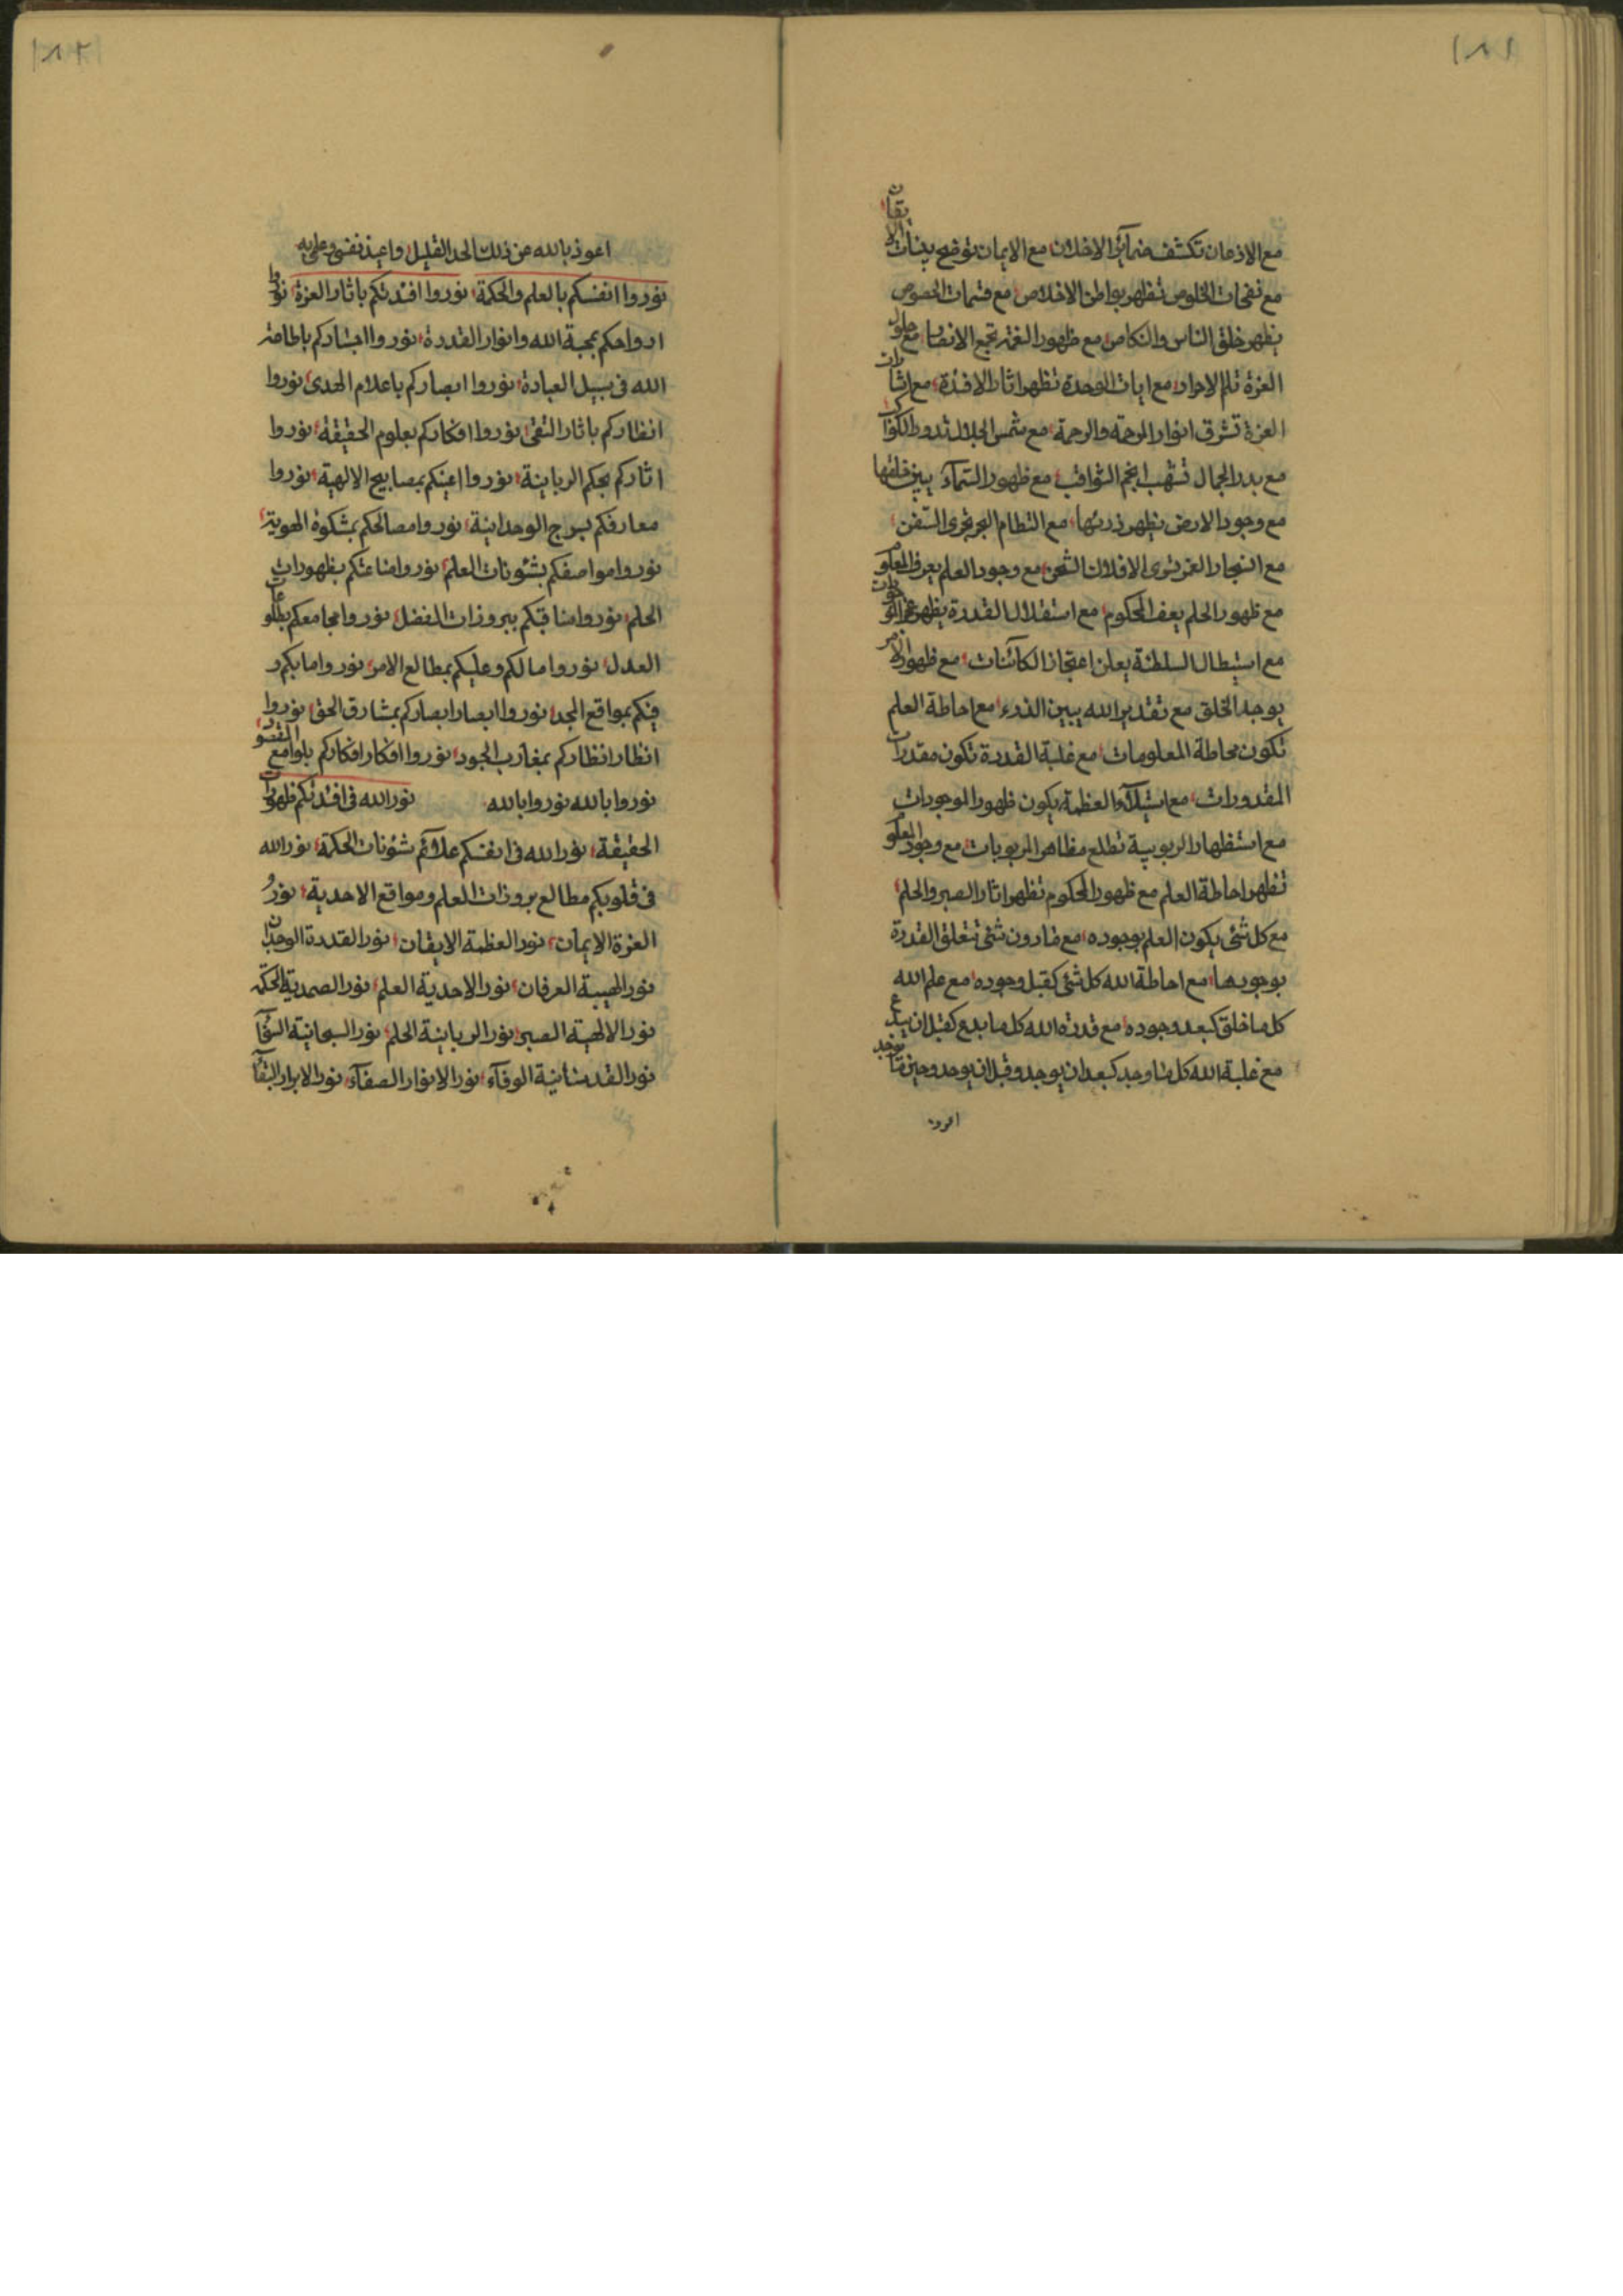 ١٨١
مع الاذعان تكشف ضمآئر الاخلان مع الايمان توضح بينات الايقان
مع نفحات الخلوص تظهر بواطن الاخلاص مع الخصوص
يظهر خلق الناس مع ظهور تجمع مع حلول
العزة الاحرار مع ايات الوحدة تظهر اثار الافئدة مع اشارات
العزة تشرق انوار المرحمة والرحمة مع شمس الجلال تدور
مع بدر الجمال انجم الثواقب مع ظهور السمآء يبين خلقها
مع وجود الارض يظهر مع التطام البحر تجرى السفن
مع ترى الافلاك مع وجود العلم يعرف المعلوم
مع ظهور الحلم المحكوم مع استقلال القدرة يظهر
مع استطال السلطنة يعلن الكآئنات مع ظهور الامر
يوجد الخلق مع تقدير الله يبين الذرء مع احاطة العلم
تكون محاطة المعلومات مع غلبة القدرة تكون مقدرات
المقدورات مع استيلآء العظمة يكون ظهور الموجودات
مع استظهار الربوبية تطلع مظاهر المربوبات مع وجود المعلوم
تظهر احاطة العلم مع ظهور المحكوم تظهر اثار الصبر والحلم
مع كل شئ يكون العلم بوجوده مع مادون شئ تتعلق القدرة
بوجودها مع احاطة الله كل شئ كقبل وجوده مع علم الله
كل ما خلق كبعد وجوده مع قدرة الله كل ما بدع كقبل ان يبدع
مع غلبة الله كل ما وجد كبعد ان يوجد وقبل ان يوجد وحين ما يوجد
١٨٢
اعوذ بالله عن ذلك الحد القليل واعيذ نفسى وعلى به
نوروا انفسكم بالعلم والحكمة نوروا افئدتكم باثار العزة نوروا
ارواحكم بمحبة الله وانوار القدرة نوروا اجسادكم باطاعة
الله فى سبيل العبادة نوروا ابصاركم باعلام الهدى نوروا
انظاركم باثار التقى نوروا افكاركم بعلوم الحقيقة نوروا
اثاركم بحكم الربانية نوروا اعينكم بمصابيح الالهية نوروا
معارفكم بسرج الوحدانية نوروا مصالحكم بمشكوة الهوية
نوروا مواصفكم بشئونات العلم نوروا مناعتكم بظهورات
الحلم نوروا مناقبكم ببروزات الفضل نوروا مجامعكم بطلوعات
العدل نوروا ما لكم وعليكم بمطالع الامر نوروا ما بكم و
فيكم بمواقع المجد نوروا ابصار ابصاركم بمشارق الحق نوروا
انظار انظاركم بمغارب الجود نوروا افكار افكاركم بلوامع المقصود
نوروا بالله نوروا بالله نور الله فى افئدتكم ظهورات
الحقيقة نور الله فى انفسكم علآئم شئونات الحكمة نور الله
فى قلوبكم مطالع بروزات العلم ومواقع الاحدية نور
العزة الايمان نور العظمة الايقان نور القدرة الوجدان
نور الهيبة العرفان نور الاحدية العلم نور الصمدية الحكمة
نور الالهية الصبر نور الربانية الحلم نور السبحانية
نور القدسانية الوفآء نور الانوار الصفآء نور الابرار البقآء